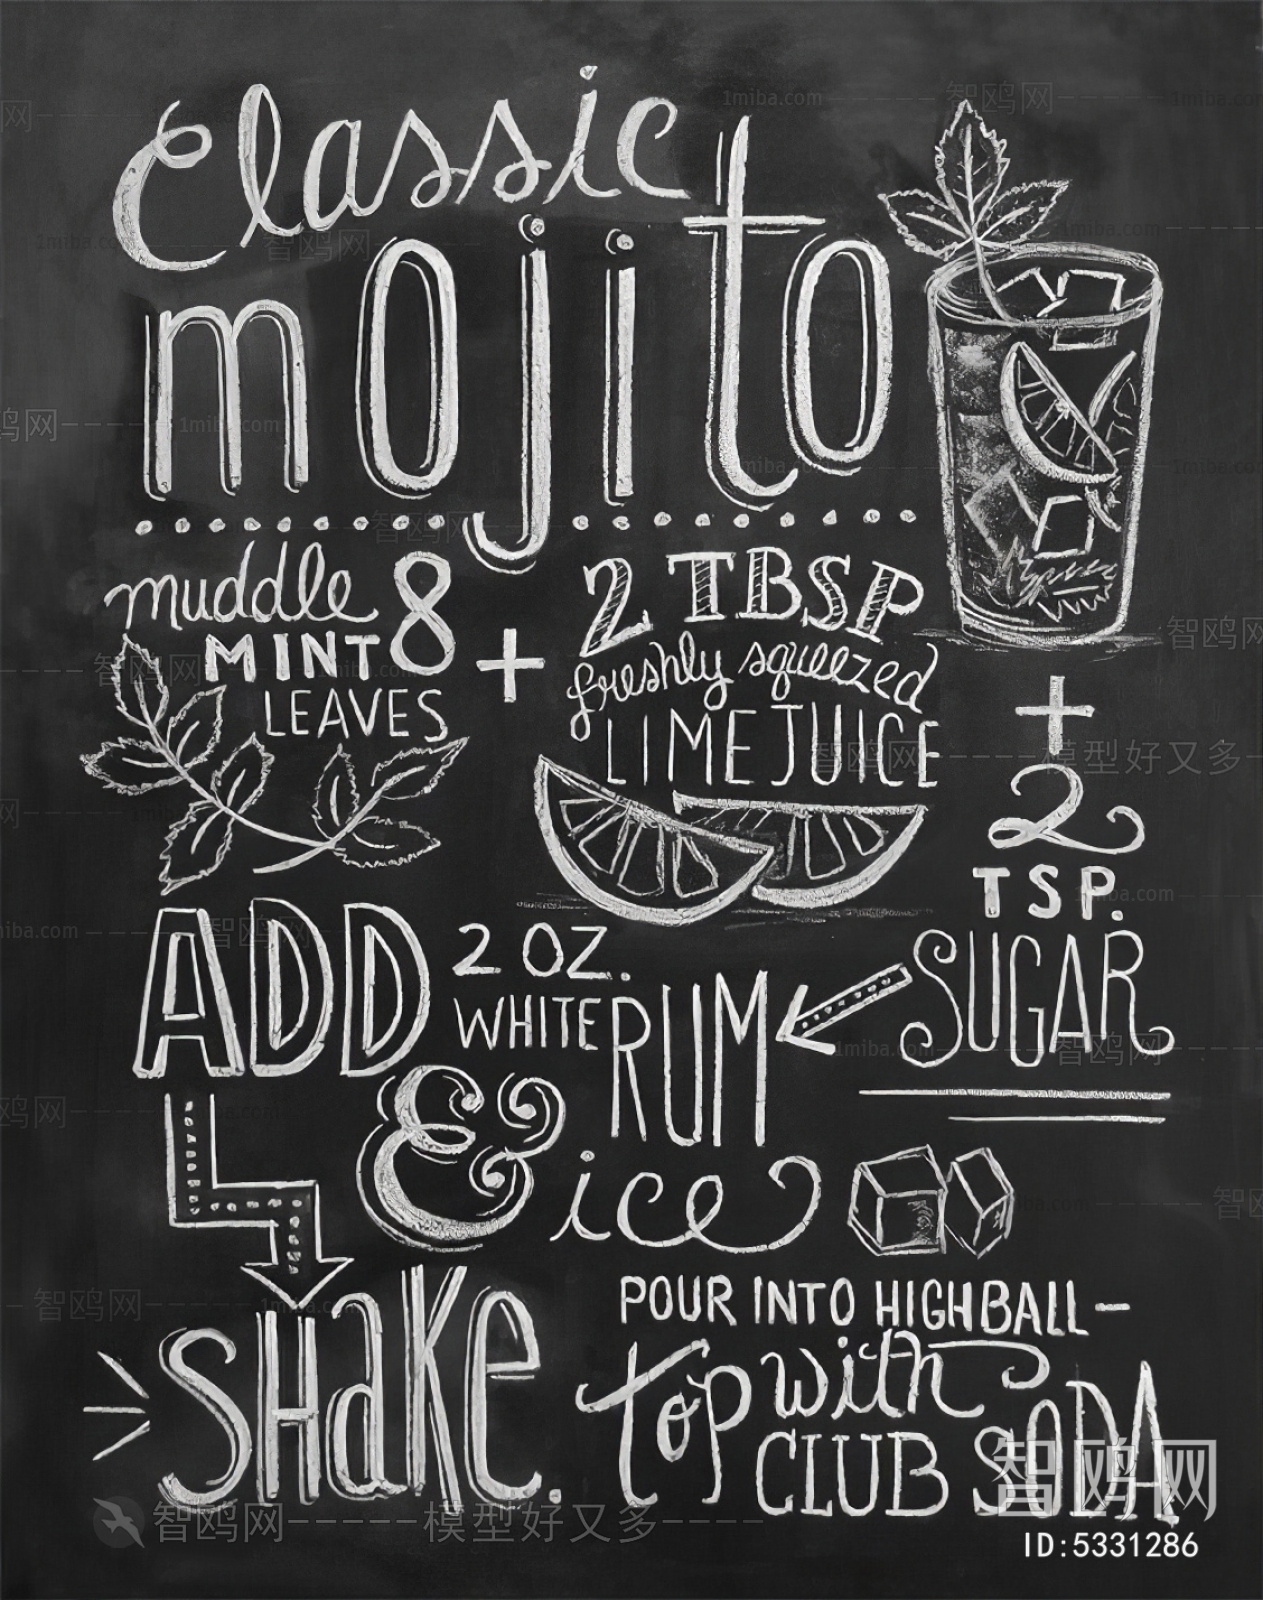 classic
mojito
muddle 8
MINT
LEAVES
+
2 TBSP
freshly squeezed
LIME JUICE
+
2
TSP.
SUGAR
ADD 2 OZ.
WHITE RUM
& ice
SHaKe.
POUR INTO HIGHBALL–
top with
CLUB SODA
智鸥网
ID:5331286
智鸥网-----模型好又多----
1miba.com